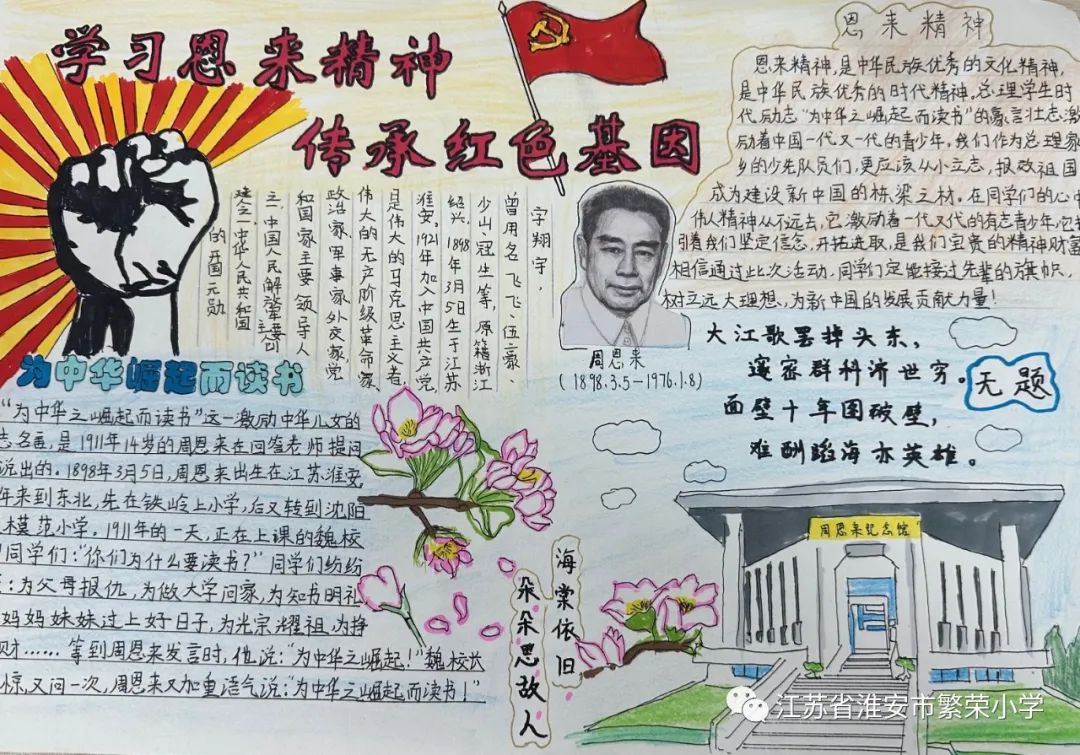 学习恩来精神
传承红色基因
恩来精神
恩来精神，是中华民族优秀的文化精神，
是中华民族优秀的时代精神。总理学生时
代励志“为中华之崛起而读书”的豪言壮志激
励着中国一代又一代的青少年。我们作为总理家
乡的少先队员们，更应该从小立志，报效祖国
成为建设新中国的栋梁之材。在同学们的心中
伟人精神从不远去，它激励着一代又代的有志青少年，它
引着我们坚定信念，开拓进取，是我们宝贵的精神财富
相信通过此次活动，同学们定能接过先辈的旗帜，
树立远大理想，为新中国的发展贡献力量！
字翔宇，
曾用名飞飞、伍豪、
少山、冠生等，原籍浙江
绍兴，1898年3月5日生于江苏
淮安，1921年加入中国共产党，
是伟大的马克思主义者，
伟大的无产阶级革命家
政治家、军事家、外交家，党
和国家主要领导人
中国人民解放军主要创
中华人民共和国
的开国元勋
周恩来
(1898.3.5-1976.1.8)
无题
大江歌罢掉头东，
邃密群科济世穷。
面壁十年图破壁，
难酬蹈海亦英雄。
为中华崛起而读书
“为中华之崛起而读书”这一激励中华儿女的
志名言，是1911年14岁的周恩来在回答老师提问
说出的。1898年3月5日，周恩来出生在江苏淮安
年来到东北，先在铁岭上小学，后又转到沈阳
模范小学。1911年的一天，正在上课的魏校
同学们：“你们为什么要读书？”同学们纷纷
：为父母报仇，为做大学问家，为知书明礼
妈妈妹妹过上好日子，为光宗耀祖，为挣
财……等到周恩来发言时，他说：“为中华之崛起！”魏校长
惊，又问一次，周恩来又加重语气说：“为中华之崛起而读书！”
海棠依旧
朵朵思故人
周恩来纪念馆
江苏省淮安市繁荣小学